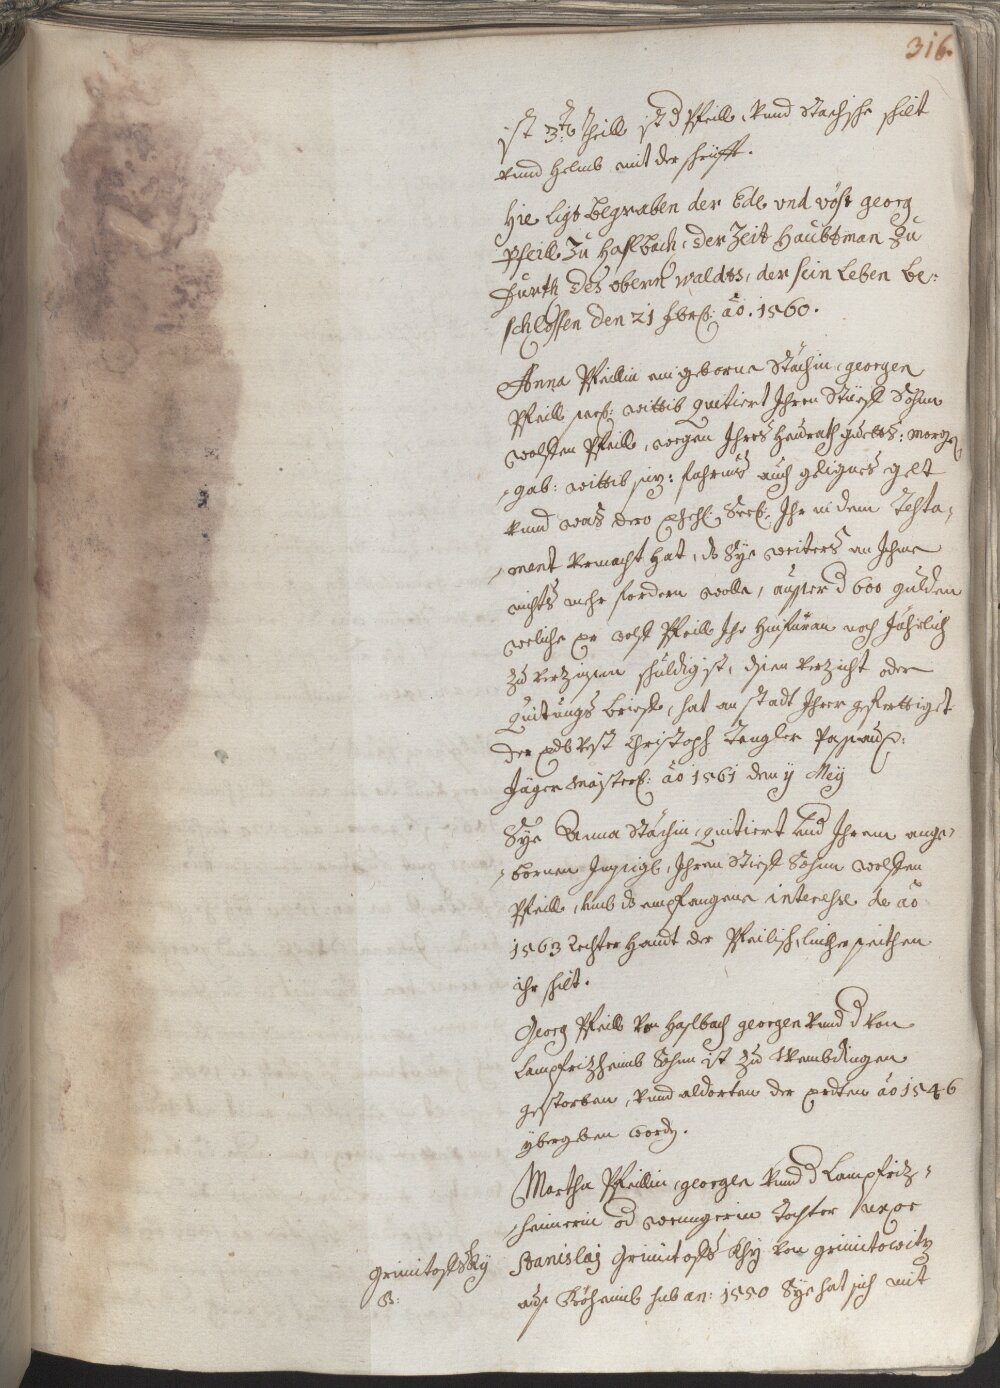 316.
ist 3te Theill ist d Pfeill, vnnd Stachische schilt
vnnd helmb mit der schrifft.
Hie ligt begraben der Edl vnd vöst georg
Pfeill zu Haslbach, der Zeit Haubtman zu
Furth des obern waldts, der sein Leben be:
schlossen den 21 ao. 1560.
Anna Pfeillin ein geborne Stächin, georgen
Pfeills wittib quitiert Ihren Stieff Sohn
wolffen Pfeill, wegen Ihres Heurath guetts: morgen
gab: wittib siz: fahrnus auch aignes gelt
vnnd was dero Ihr in dem Testa,
,ment vermacht hat, ds Sye weiters an Ihme
nichts mehr fordern wolle, ausser d 600 gulden
weliche er wolff Pfeill Ihr hinfüran noch Jährlich
zu verzinsen schuldig ist, disen verzicht oder
quitungs brieff, hat an statt Ihrer gefertiget
der edl vest Christoph Tengler Passau:
Jäger maister: ao 1561 den ij Meÿ
Sÿe Anna Stächin, quitiert vnd Ihrem ange,
,bornen Insigl, Ihren Stieff Sohn wolffen
Pfeill, vmb ds empfangene interesse de ao
1563 rechter handt der Pfeilisch, lincker seithen
ihr schilt.
Georg Pfeill von Haslbach georgen vnnd d von
Lampfrizheimb Sohn ist zu Wembdingen
gestorben, vnnd aldorten der erdten ao 1546
ybergeben wordn.
Martha Pfeillin, georgen vnnd d Lampfriz,
,heimerin od wemgerin Tochter uxor
Stanislaj Grimitofs Khÿ von grimitowitz
aus Böheimb hab an: 1550 Sÿe hat sich mit
Grimitofsky
B: